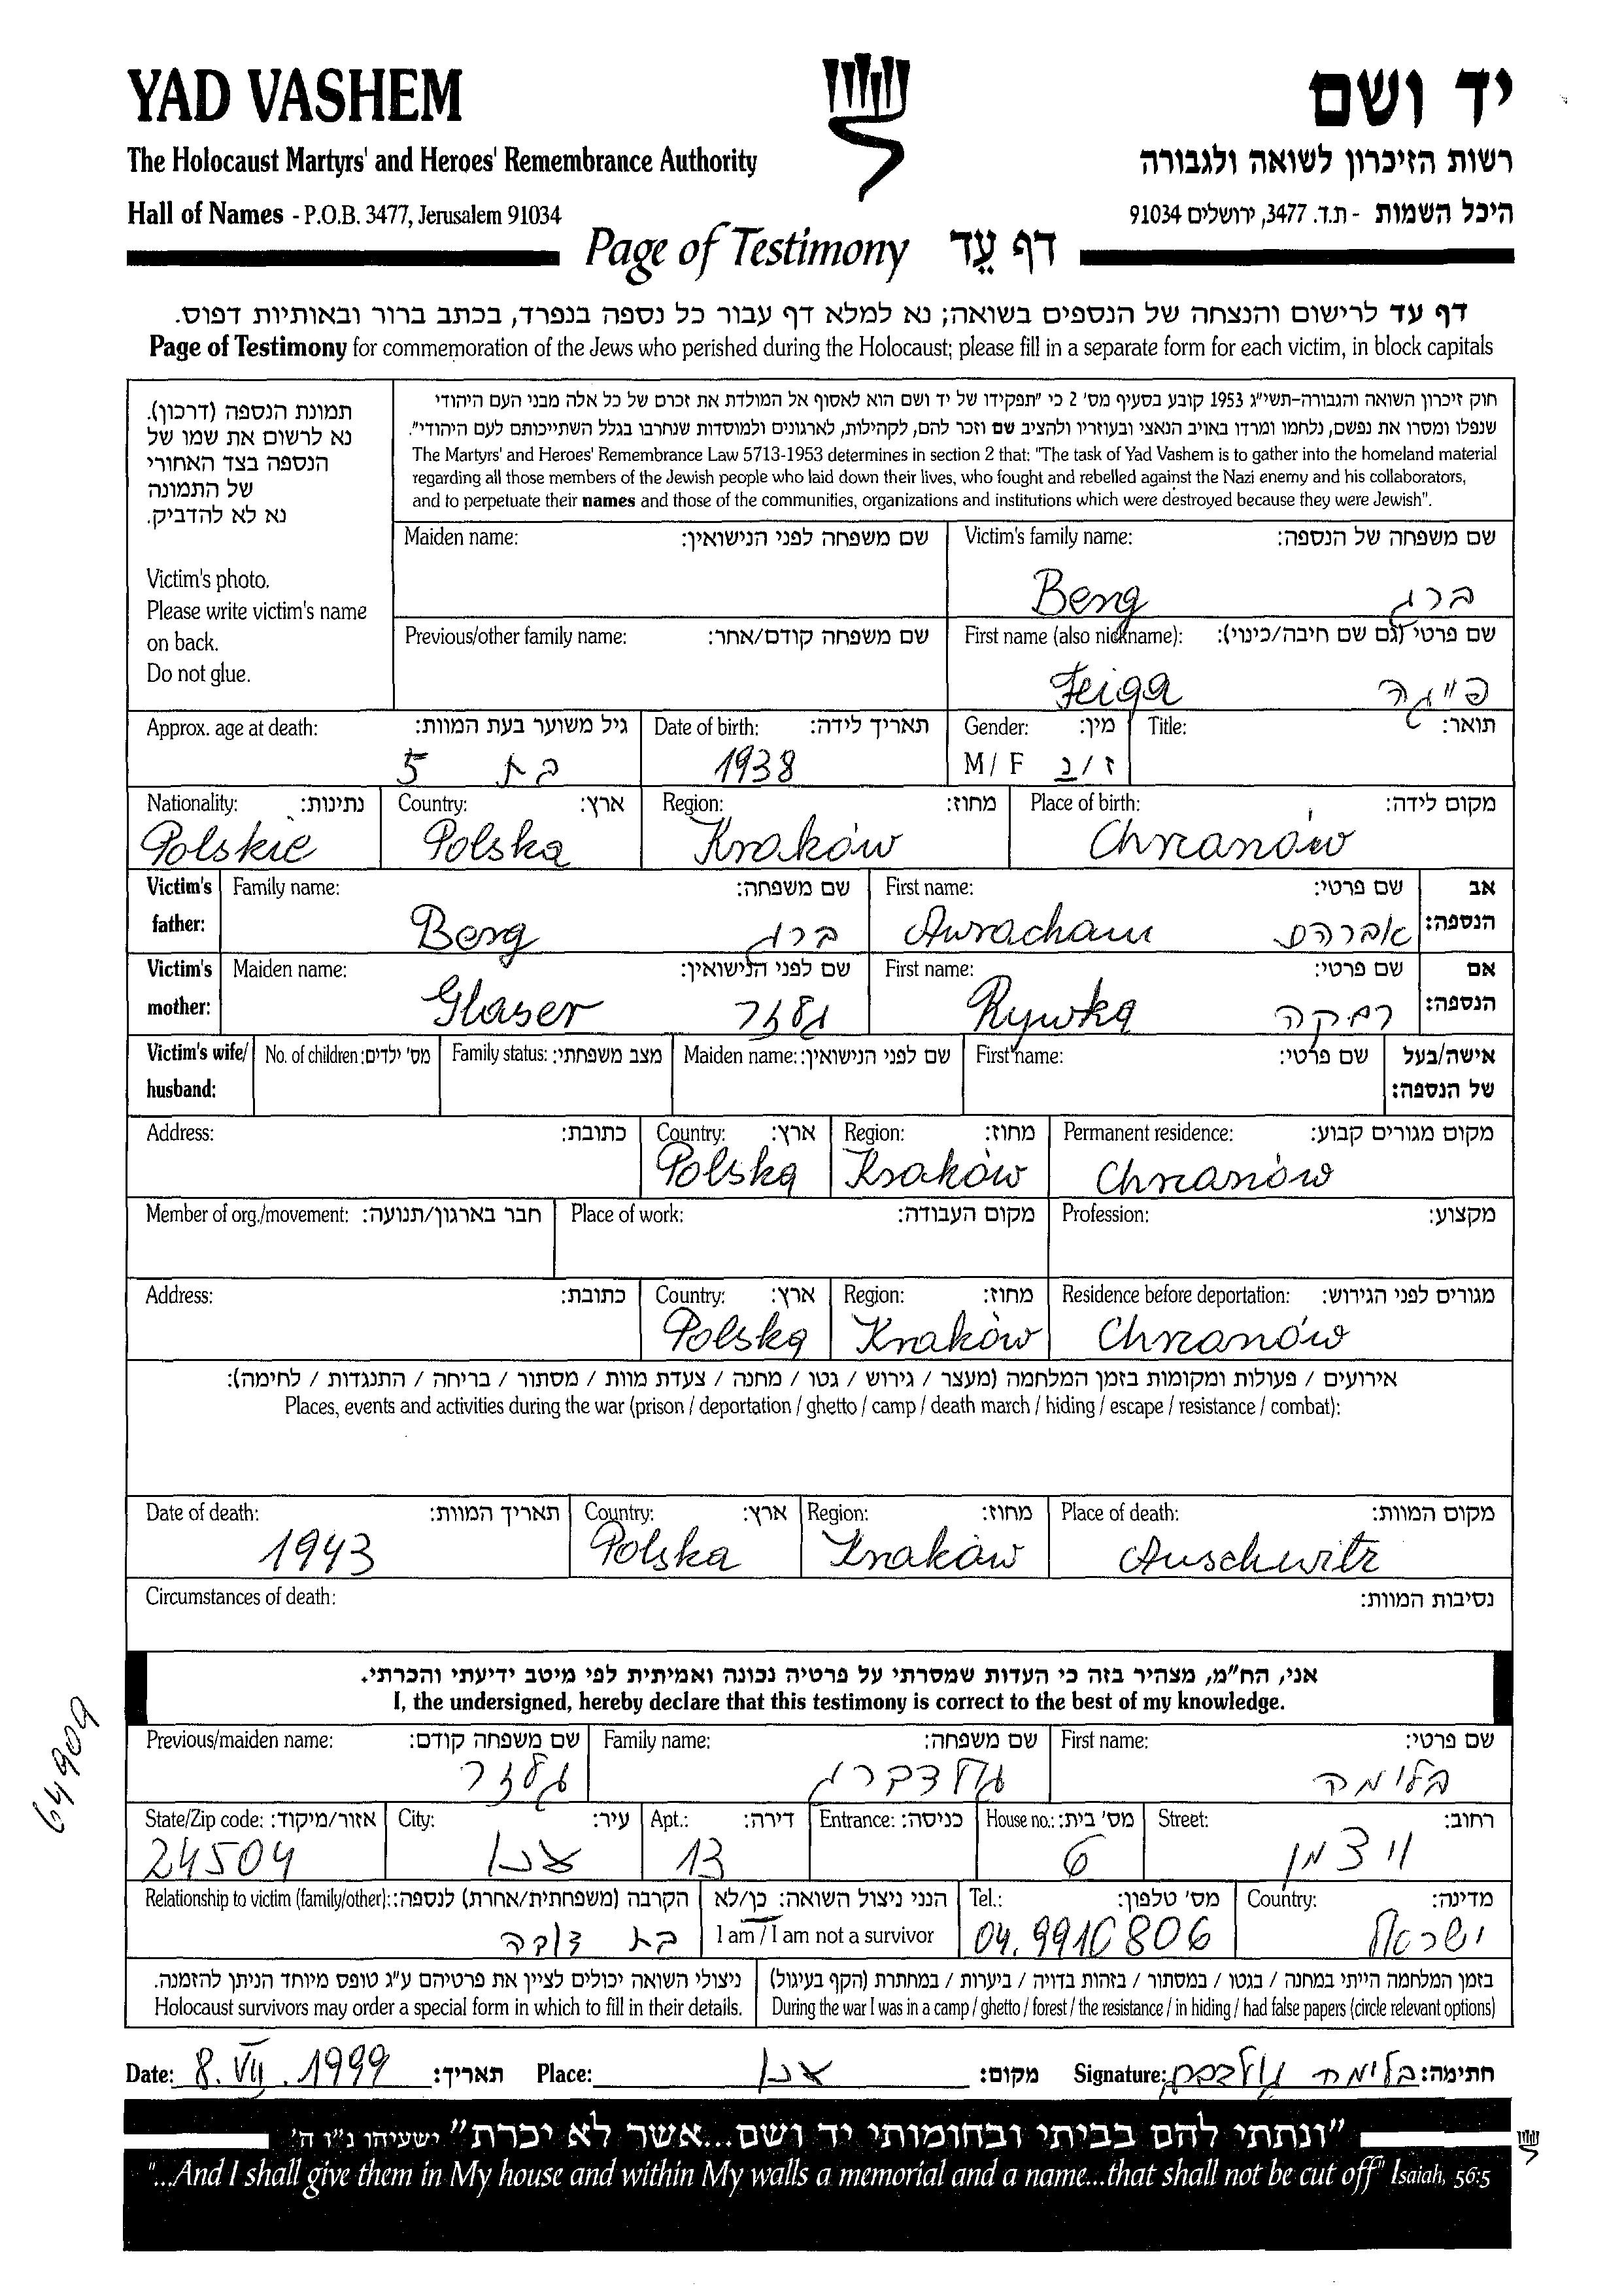 YAD VASHEM
יד ושם
The Holocaust Martyrs' and Heroes' Remembrance Authority
רשות הזיכרון לשואה ולגבורה
Hall of Names - P.O.B. 3477, Jerusalem 91034
היכל השמות - ת.ד. 3477, ירושלים 91034
Page of Testimony דף עֵד
דף עד לרישום והנצחה של הנספים בשואה; נא למלא דף עבור כל נספה בנפרד, בכתב ברור ובאותיות דפוס.
Page of Testimony for commemoration of the Jews who perished during the Holocaust; please fill in a separate form for each victim, in block capitals
תמונת הנספה (דרכון).
נא לרשום את שמו של
הנספה בצד האחורי
של התמונה
נא לא להדביק.
Victim's photo.
Please write victim's name
on back.
Do not glue.
חוק זיכרון השואה והגבורה-תשי"ג 1953 קובע בסעיף מס' 2 כי "תפקידו של יד ושם הוא לאסוף אל המולדת את זכרם של כל אלה מבני העם היהודי
שנפלו ומסרו את נפשם, נלחמו ומרדו באויב הנאצי ובעוזריו ולהציב שם וזכר להם, לקהילות, לארגונים ולמוסדות שנחרבו בגלל השתייכותם לעם היהודי".
The Martyrs' and Heroes' Remembrance Law 5713-1953 determines in section 2 that: "The task of Yad Vashem is to gather into the homeland material
regarding all those members of the Jewish people who laid down their lives, who fought and rebelled against the Nazi enemy and his collaborators,
and to perpetuate their names and those of the communities, organizations and institutions which were destroyed because they were Jewish".
Maiden name: שם משפחה לפני הנישואין:
Victim's family name: שם משפחה של הנספה:
Berg ברג
Previous/other family name: שם משפחה קודם/אחר:
First name (also nickname): שם פרטי (גם שם חיבה/כינוי):
Feiga פייגה
Approx. age at death: גיל משוער בעת המוות:
5 בת
Date of birth: תאריך לידה:
1938
Gender: מין:
M / F ז / נ
Title: תואר:
Nationality: נתינות:
Polskie
Country: ארץ:
Polska
Region: מחוז:
Kraków
Place of birth: מקום לידה:
Chrzanów
Victim's father:
Family name: שם משפחה:
Berg ברג
First name: שם פרטי:
Awracham אברהם
אב הנספה:
Victim's mother:
Maiden name: שם לפני הנישואין:
Glaser גלזר
First name: שם פרטי:
Rywka רבקה
אם הנספה:
Victim's wife/ husband:
No. of children: מס' ילדים:
Family status: מצב משפחתי:
Maiden name: שם לפני הנישואין:
First name: שם פרטי:
אישה/בעל של הנספה:
Address: כתובת:
Country: ארץ:
Polska
Region: מחוז:
Kraków
Permanent residence: מקום מגורים קבוע:
Chrzanów
Member of org./movement: חבר בארגון/תנועה:
Place of work: מקום העבודה:
Profession: מקצוע:
Address: כתובת:
Country: ארץ:
Polska
Region: מחוז:
Kraków
Residence before deportation: מגורים לפני הגירוש:
Chrzanów
אירועים / פעולות ומקומות בזמן המלחמה (מעצר / גירוש / גטו / מחנה / צעדת מוות / מסתור / בריחה / התנגדות / לחימה):
Places, events and activities during the war (prison / deportation / ghetto / camp / death march / hiding / escape / resistance / combat):
Date of death: תאריך המוות:
1943
Country: ארץ:
Polska
Region: מחוז:
Kraków
Place of death: מקום המוות:
Auschwitz
Circumstances of death: נסיבות המוות:
אני, הח"מ, מצהיר בזה כי העדות שמסרתי על פרטיה נכונה ואמיתית לפי מיטב ידיעתי והכרתי.
I, the undersigned, hereby declare that this testimony is correct to the best of my knowledge.
64909
Previous/maiden name: שם משפחה קודם:
גלזר
Family name: שם משפחה:
גולדברג
First name: שם פרטי:
בלומה
State/Zip code: אזור/מיקוד:
24504
City: עיר:
עכו
Apt.: דירה:
13
Entrance: כניסה:
House no.: מס' בית:
6
Street: רחוב:
ויצמן
Relationship to victim (family/other): הקרבה (משפחתית/אחרת) לנספה:
בת דודה
הנני ניצול השואה: כן/לא
I am / I am not a survivor
Tel.: מס' טלפון:
04.9910806
Country: מדינה:
ישראל
ניצולי השואה יכולים לציין את פרטיהם ע"ג טופס מיוחד הניתן להזמנה.
Holocaust survivors may order a special form in which to fill in their details.
בזמן המלחמה הייתי במחנה / בגטו / במסתור / בזהות בדויה / ביערות / במחתרת (הקף בעיגול)
During the war I was in a camp / ghetto / forest / the resistance / in hiding / had false papers (circle relevant options)
Date: 8.VII.1999 תאריך: Place: עכו מקום: Signature: בלומה גולדברג חתימה:
"ונתתי להם בביתי ובחומותי יד ושם...אשר לא יכרת" ישעיהו נ"ו ה'
"...And I shall give them in My house and within My walls a memorial and a name...that shall not be cut off" Isaiah, 56:5